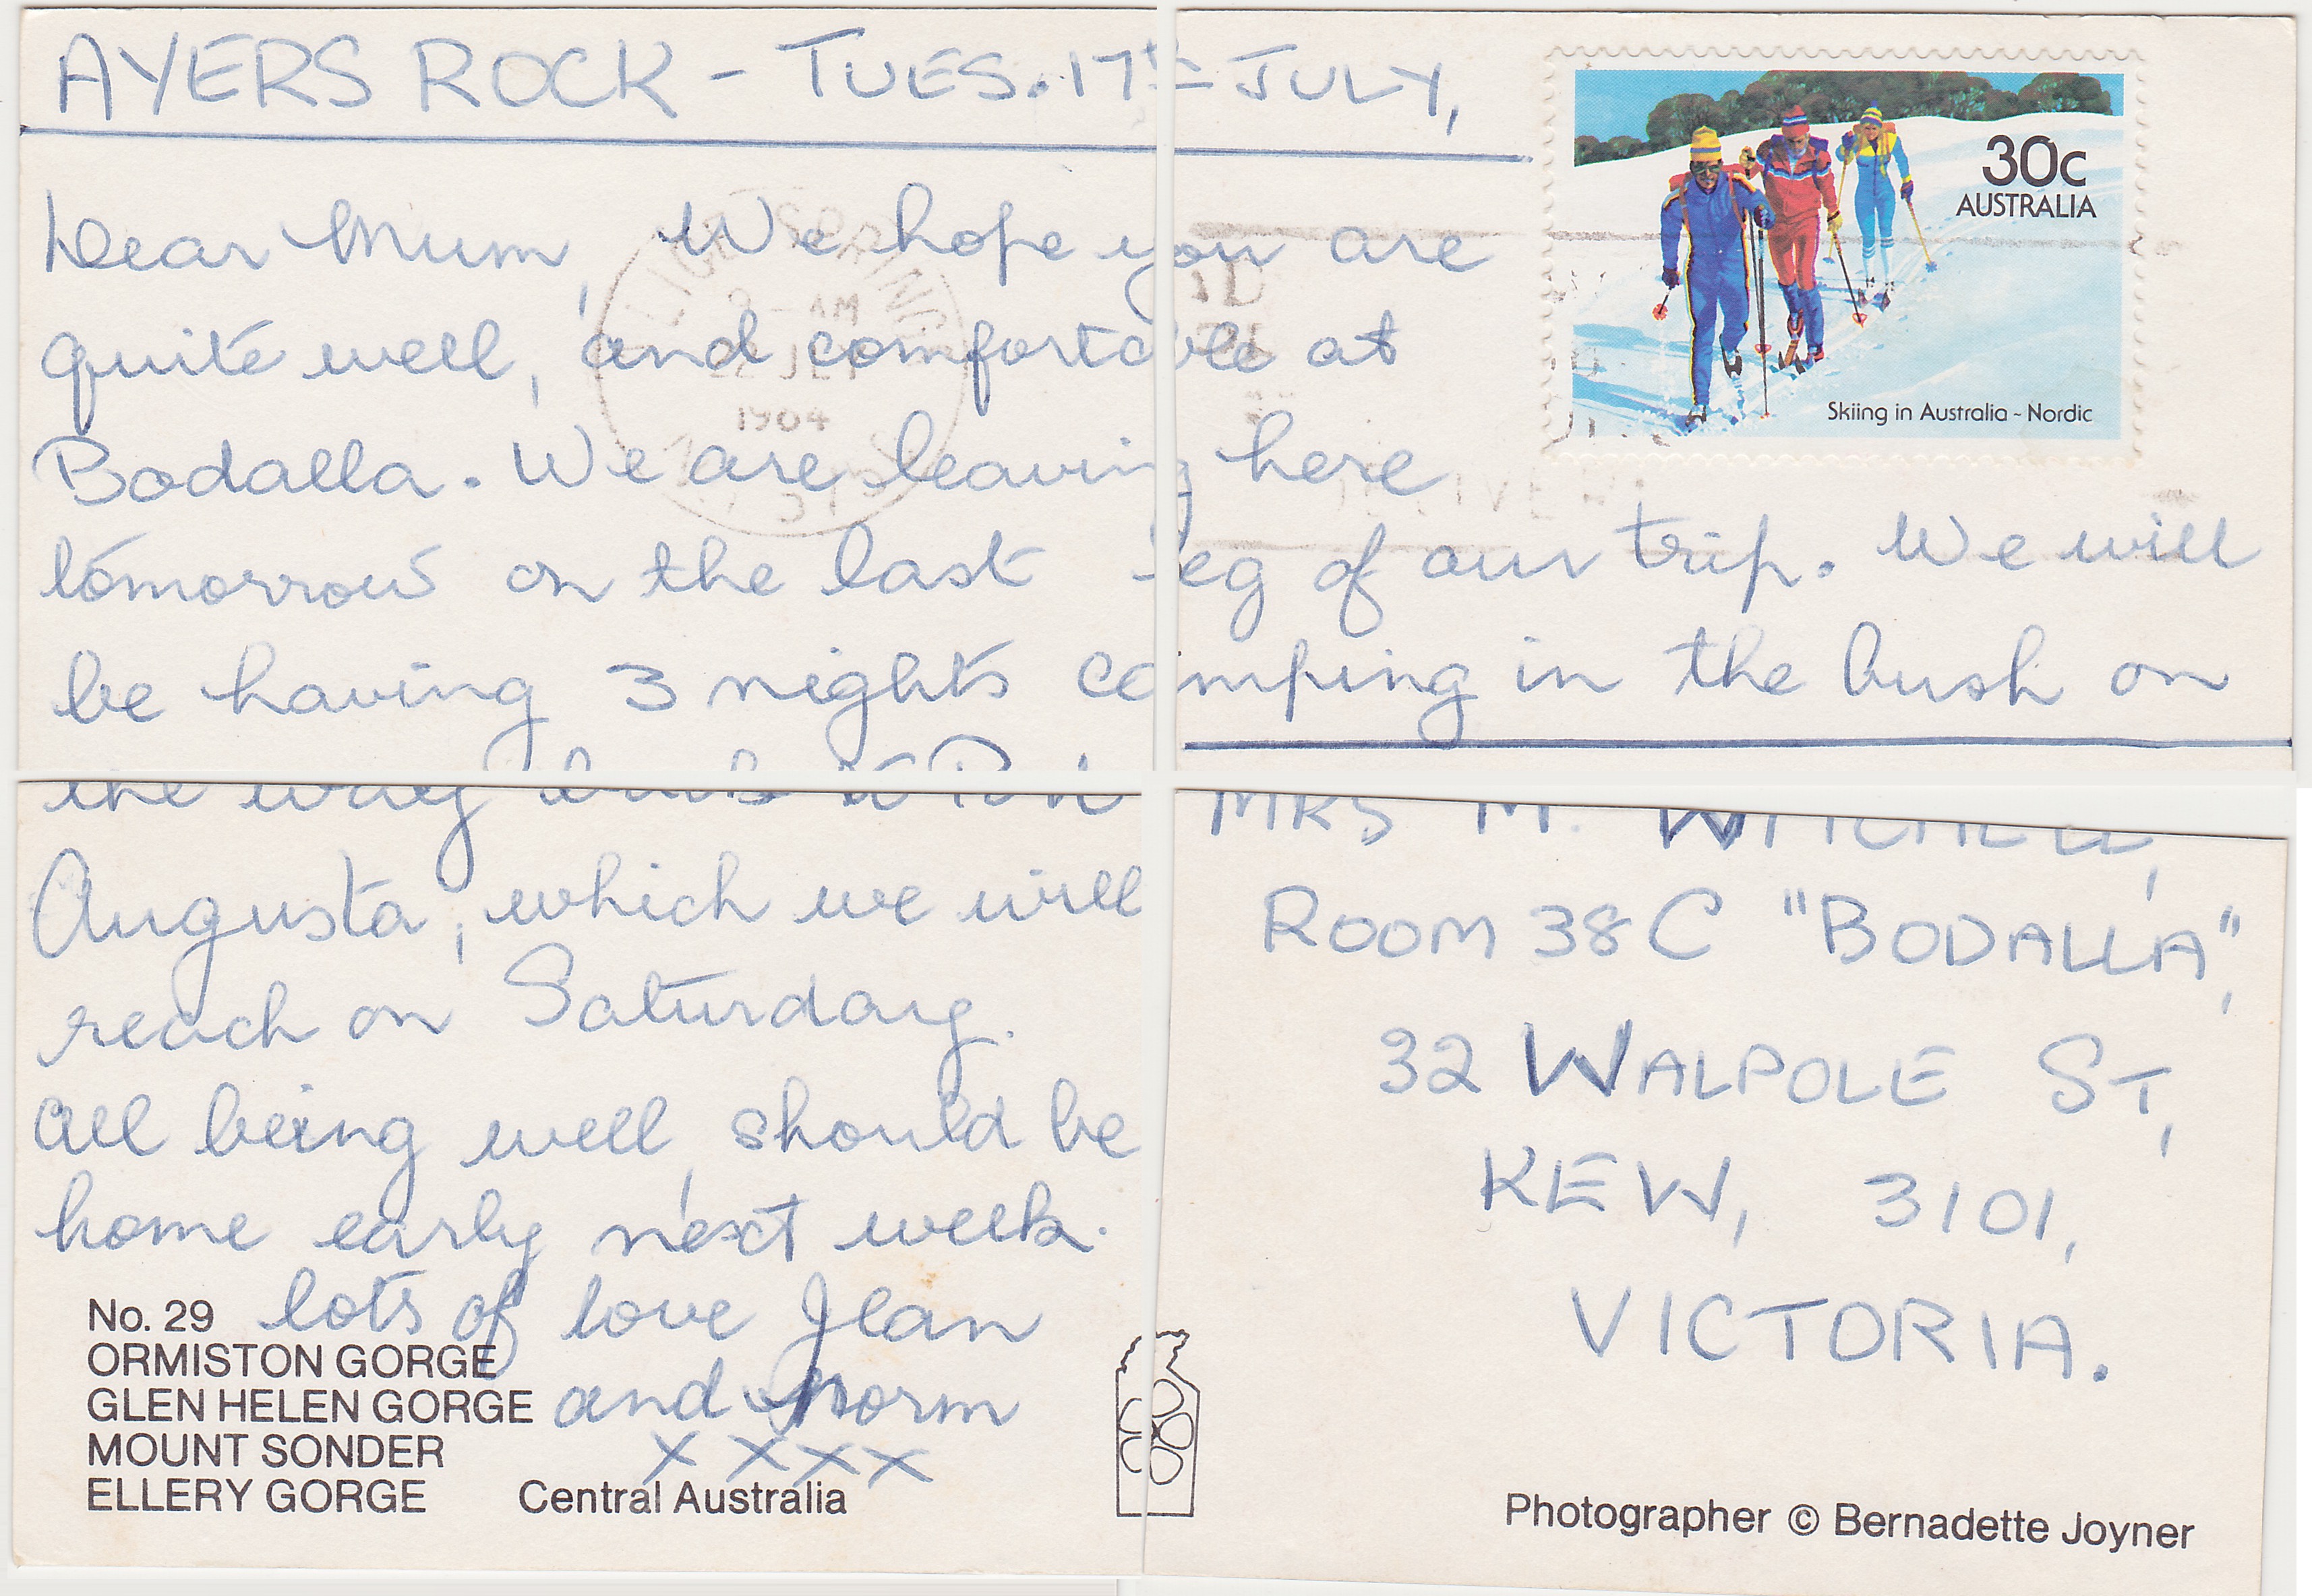 AYERS ROCK - TUES. 17th JULY,
Dear Mum, We hope you are
quite well, and comfortable at
Bodalla. We are leaving here
tomorrow on the last leg of our trip. We will
be having 3 nights camping in the bush on
the way back to Port
Augusta, which we will
reach on Saturday.
All being well, should be
home early next week.
lots of love Jean
and Norm
x x x x
30c
AUSTRALIA
Skiing in Australia - Nordic
ALICE SPRINGS
- AM
1984
MRS M. WITCHELL,
ROOM 38C "BODALLA",
32 WALPOLE ST,
KEW, 3101,
VICTORIA.
No. 29
ORMISTON GORGE
GLEN HELEN GORGE
MOUNT SONDER
ELLERY GORGE
Central Australia
Photographer © Bernadette Joyner